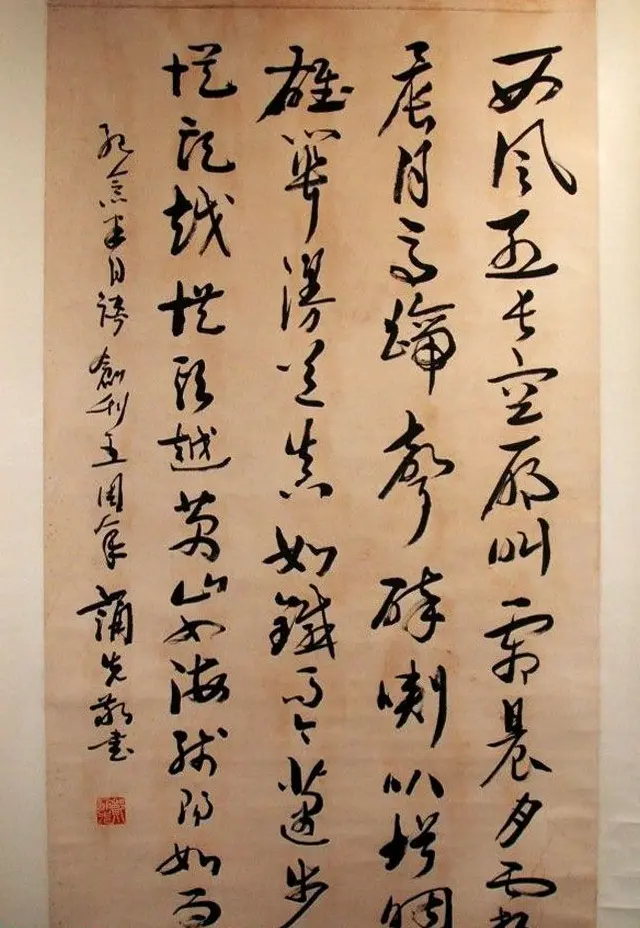 西風烈長空雁叫霜晨月霜
晨月馬蹄聲碎喇叭聲咽
雄關漫道真如鐵而今邁步
從頭越從頭越蒼山如海殘陽如血
紀念半月談創刊五周年 敬書